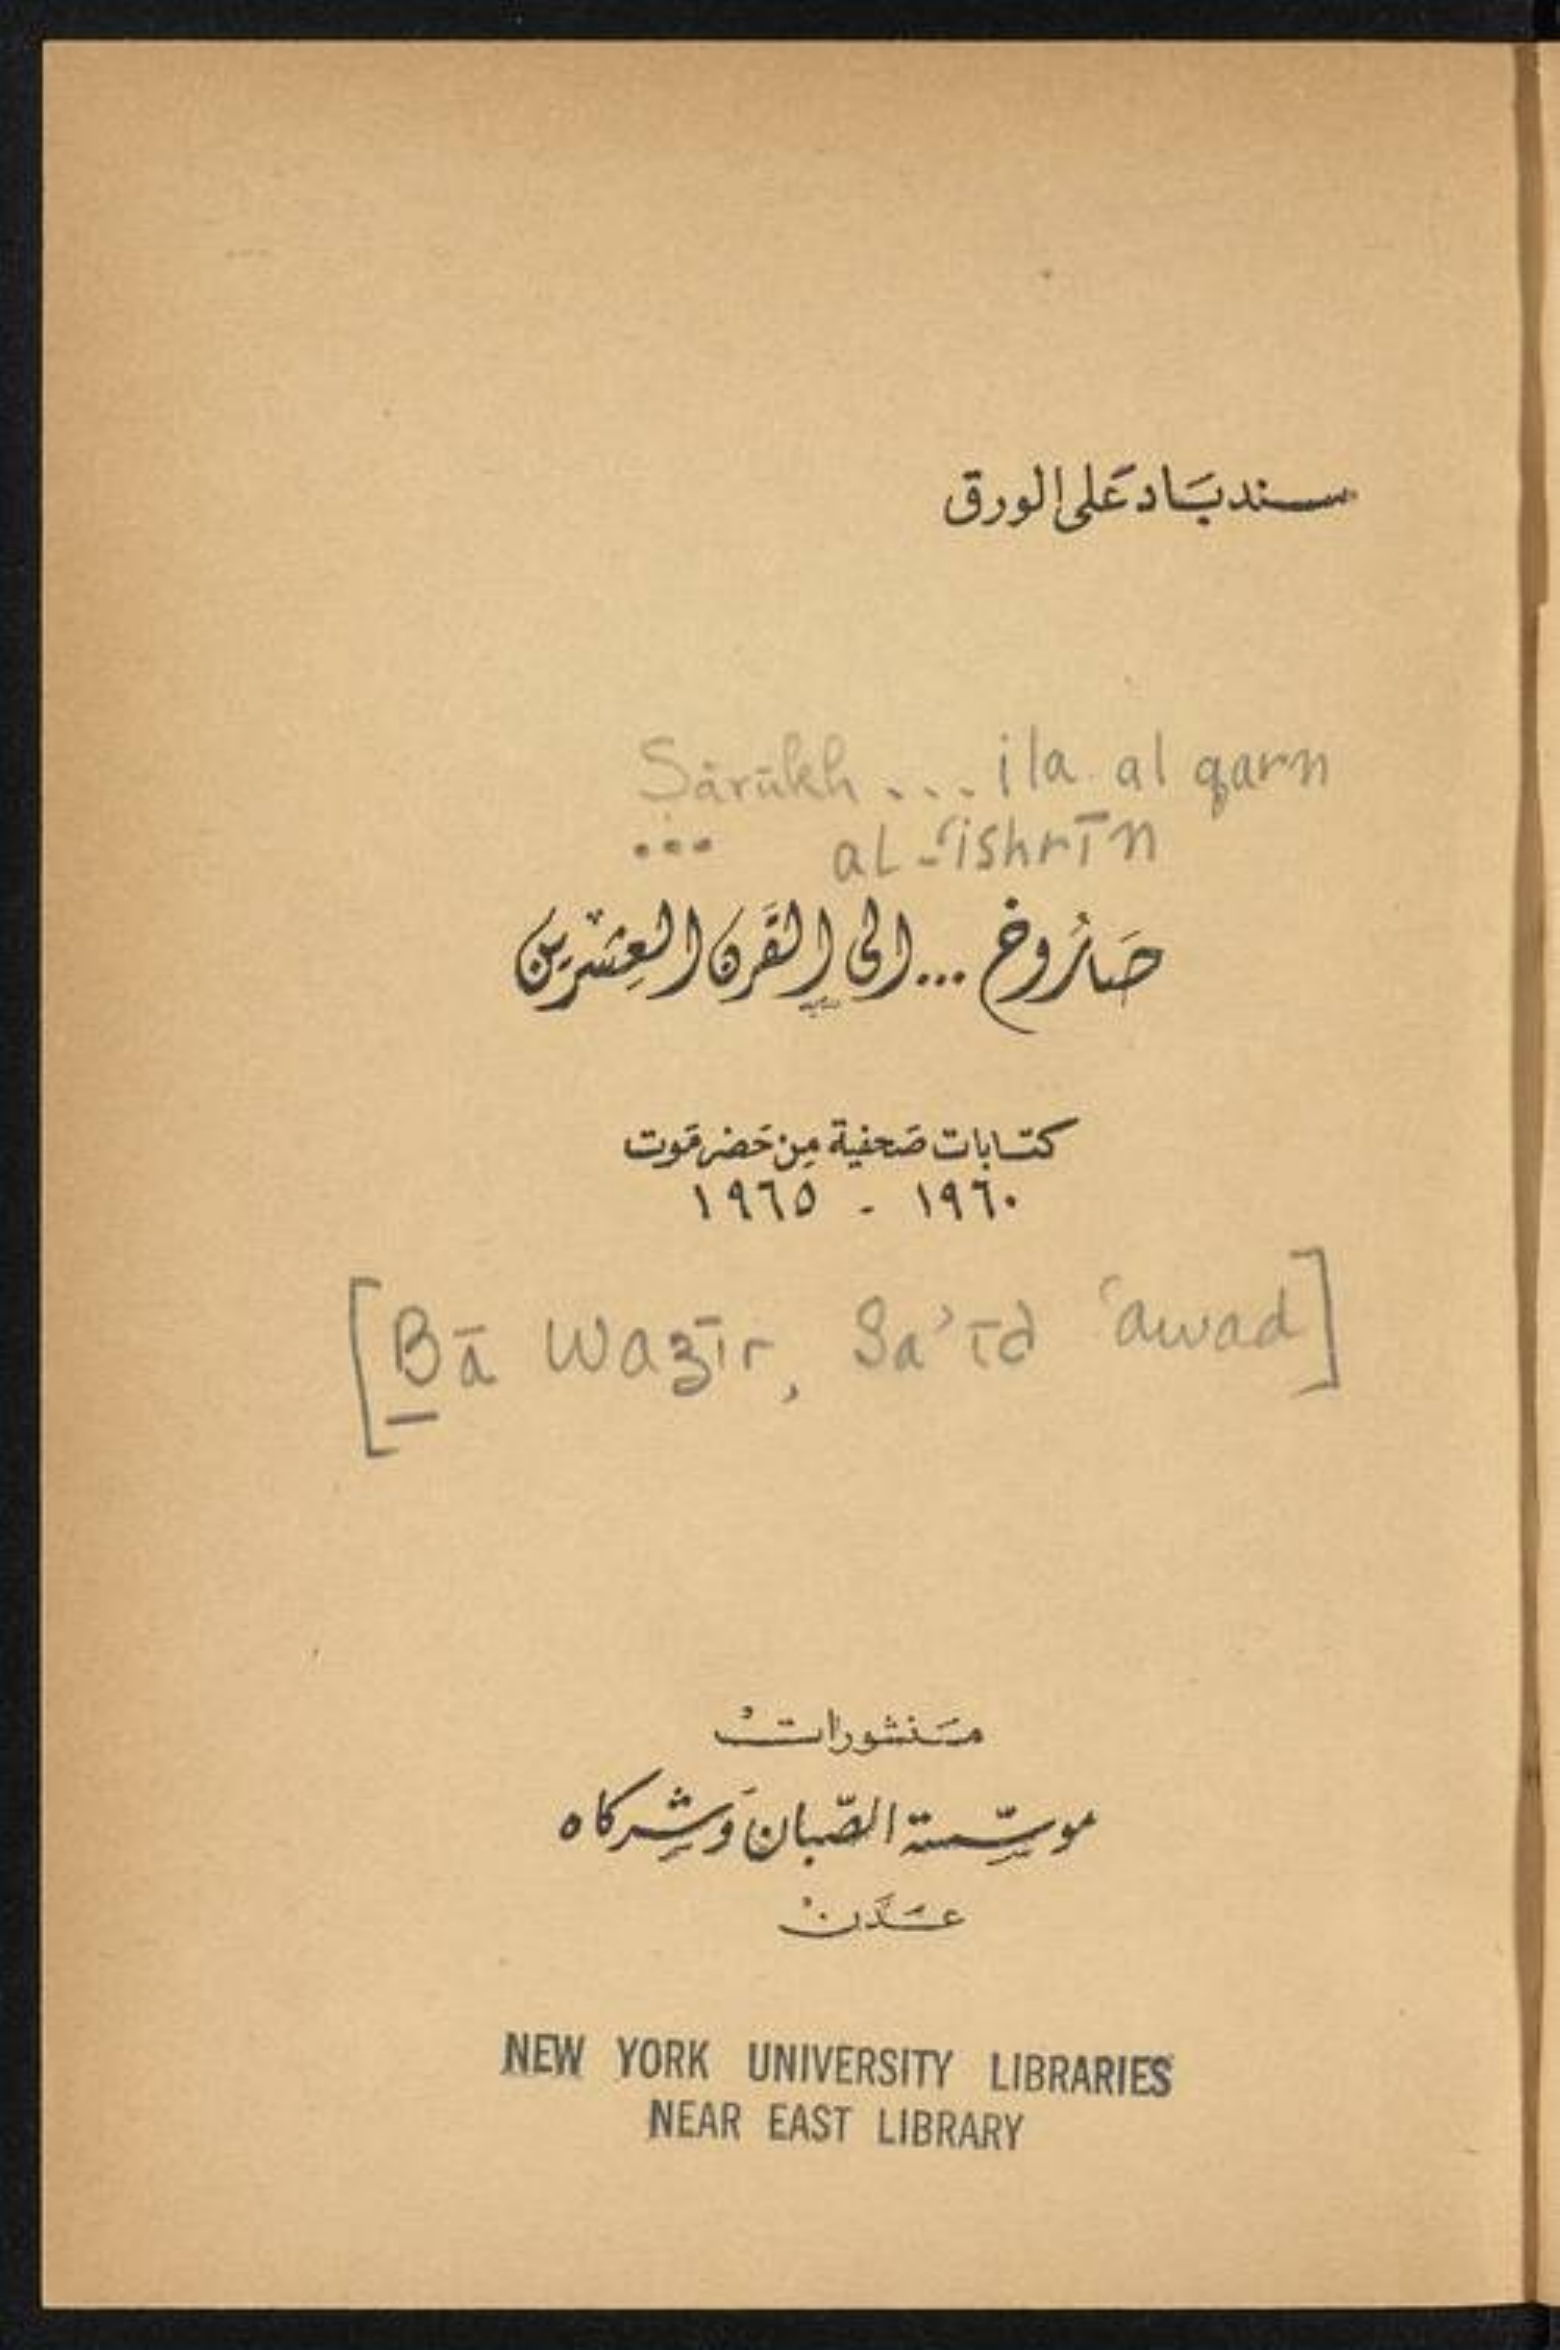 سندبَاد عَلى الورق
Ṣārūkh ... ila al qarn
... al-ʿishrīn
صَارُوخ ... الى القَرن العِشرين
كتابات صَحفية مِن حَضرمَوت
١٩٦٠ - ١٩٦٥
[Bā Wazīr, Sa'īd ʿawad]
مَنشورات
موسّسة الصّبان وَشركاه
عَدَن
NEW YORK UNIVERSITY LIBRARIES
NEAR EAST LIBRARY